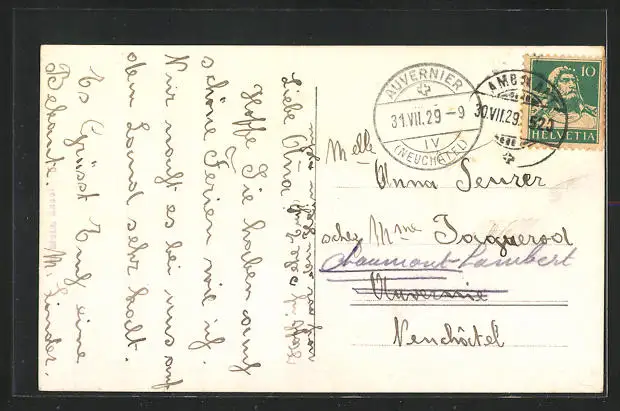 Liebe Anna
Hoffe Sie haben auch
schöne Ferien wie ich.
Nur macht es bei uns auf
dem Land sehr kalt.
Es Grüsst Euch eine
Bekante. M. Linder.
AUVERNIER
31.VII.29-9
IV
(NEUCHÂTEL)
AMB
30.VII.29
10
HELVETIA
Melle
Anna
chez Mme Jaquerod
Chaumont-Lambert
Auvernie
Neuchâtel